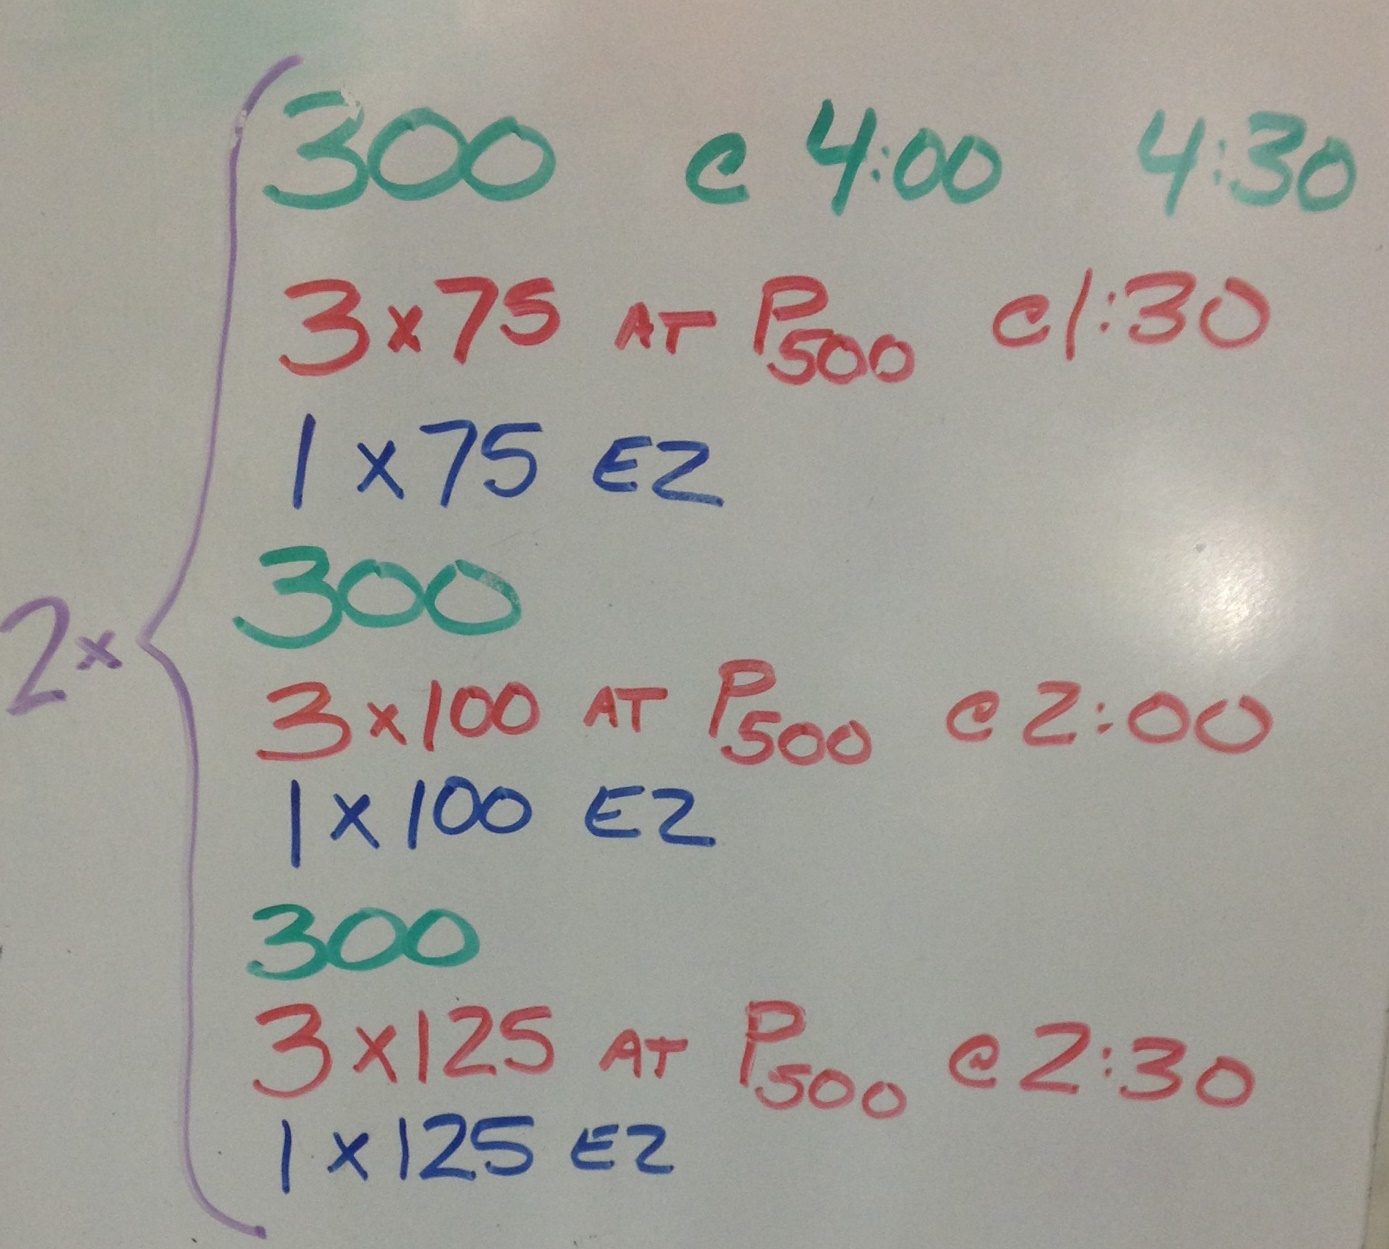 300 @ 4:00 4:30
3x75 AT P500 @ 1:30
1x75 EZ
300
2x
3x100 AT P500 @ 2:00
1x100 EZ
300
3x125 AT P500 @ 2:30
1x125 EZ